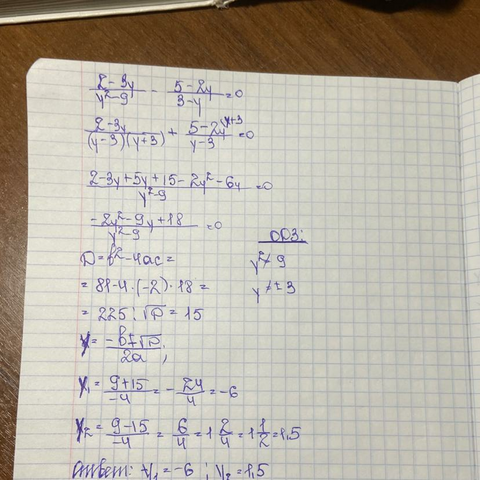 (2-3y)/(y²-9) - (5-2y)/(3-y) = 0
(2-3y)/((y-3)(y+3)) + (5-2y)/(y-3) = 0 y+3
(2-3y+5y+15-2y²-6y)/(y²-9) = 0
(-2y²-9y+18)/(y²-9) = 0
ОДЗ:
D=b²-4ac=
y²≠9
=81-4·(-2)·18=
y≠±3
=225; √D=15
y=(-b±√D)/2a;
y₁=(9+15)/-4=-24/4=-6
y₂=(9-15)/-4=6/4=1 2/4=1 1/2=1,5
Ответ: y₁=-6; y₂=1,5